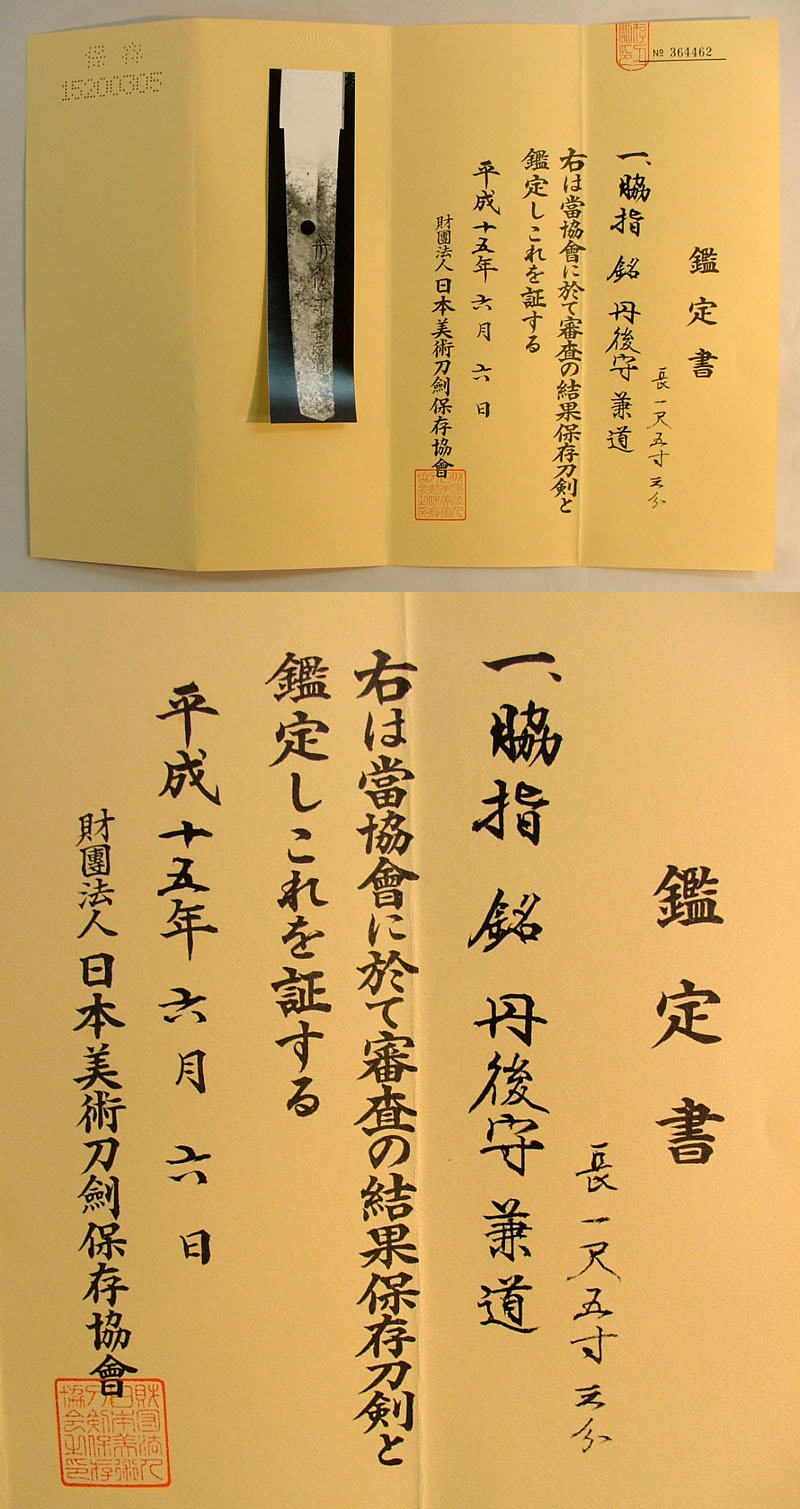 保存
15200305
№ 364462
鑑定書
一、脇指 銘 丹後守兼道
長一尺五寸三分
右は當協會に於て審査の結果保存刀剣と
鑑定しこれを証する
平成十五年六月六日
財團法人日本美術刀劍保存協會
丹後守兼道
鑑定書
長一尺五寸三分
一、脇指 銘 丹後守兼道
右は當協會に於て審査の結果保存刀剣と
鑑定しこれを証する
平成十五年六月六日
財團法人日本美術刀劍保存協會